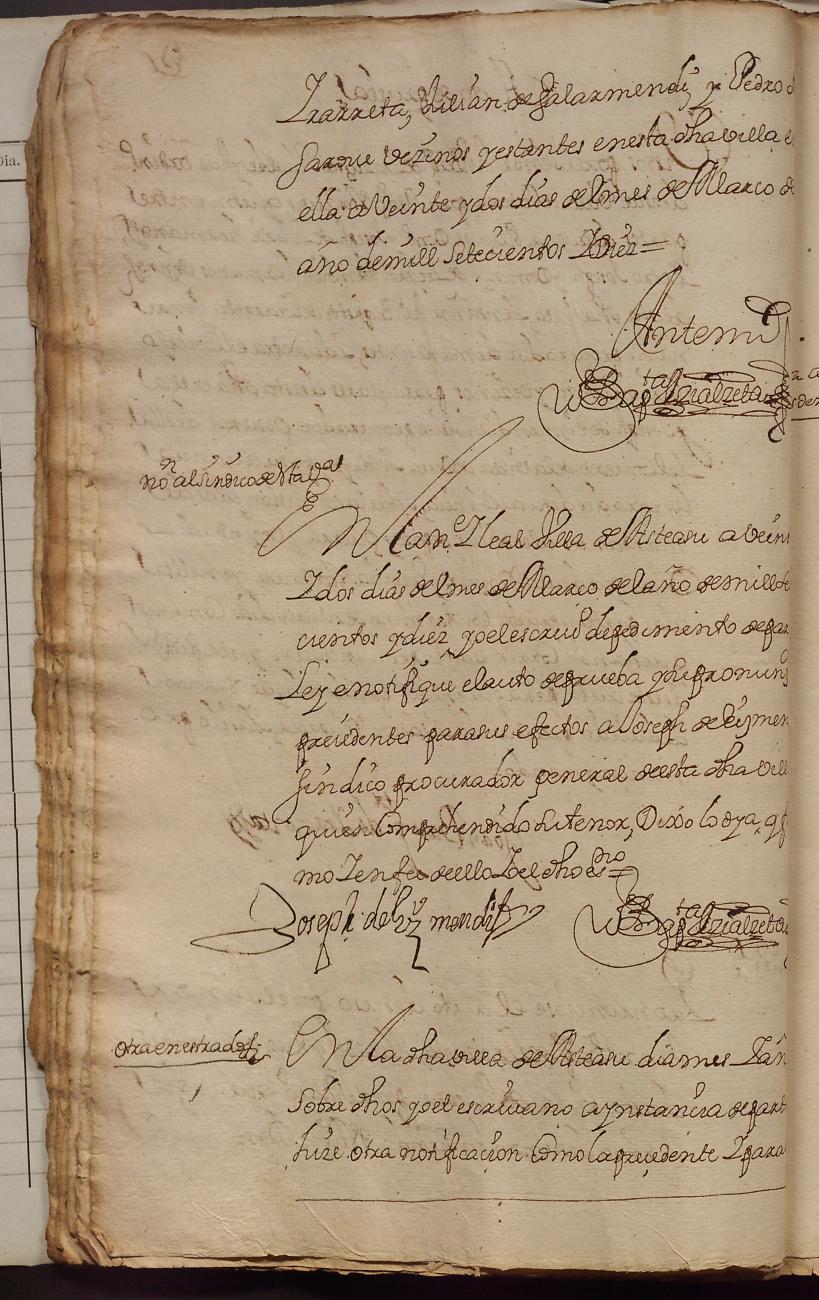 Yrarreta, Julian de Galarmendi, y Pedro
Sarove vezinos y estantes en esta dha villa
ella a Veinte y dos dias del mes de Marco de
año de mill Setecientos Y Diez=
Antemi
Bapta Yrialzeta
non al sindico de sta va
En la mN e Y leal Villa de Asteasu a Vein
Y dos dias del mes de Marco del año de mill se
cientos y diez yo el escriuo de pedimento de par
Ley e notifiqué el auto de prueba y su pronun
precedentes para sus efectos a Joseph de Eizmen
sindico procurador general de esta dha vill
quien Comprehendido su tenor, Dixo lo oya, y f
mo Y en fee de ello Y el dho esno=
Joseph de Eizmendi
Bapta Yrialzeta
otra en estrados
En la dha villa de Asteasu dia mes Y añ
Sobre dhos yo el escriuano a ynstancia de part
hize otra notificacion Como la precedente Y para